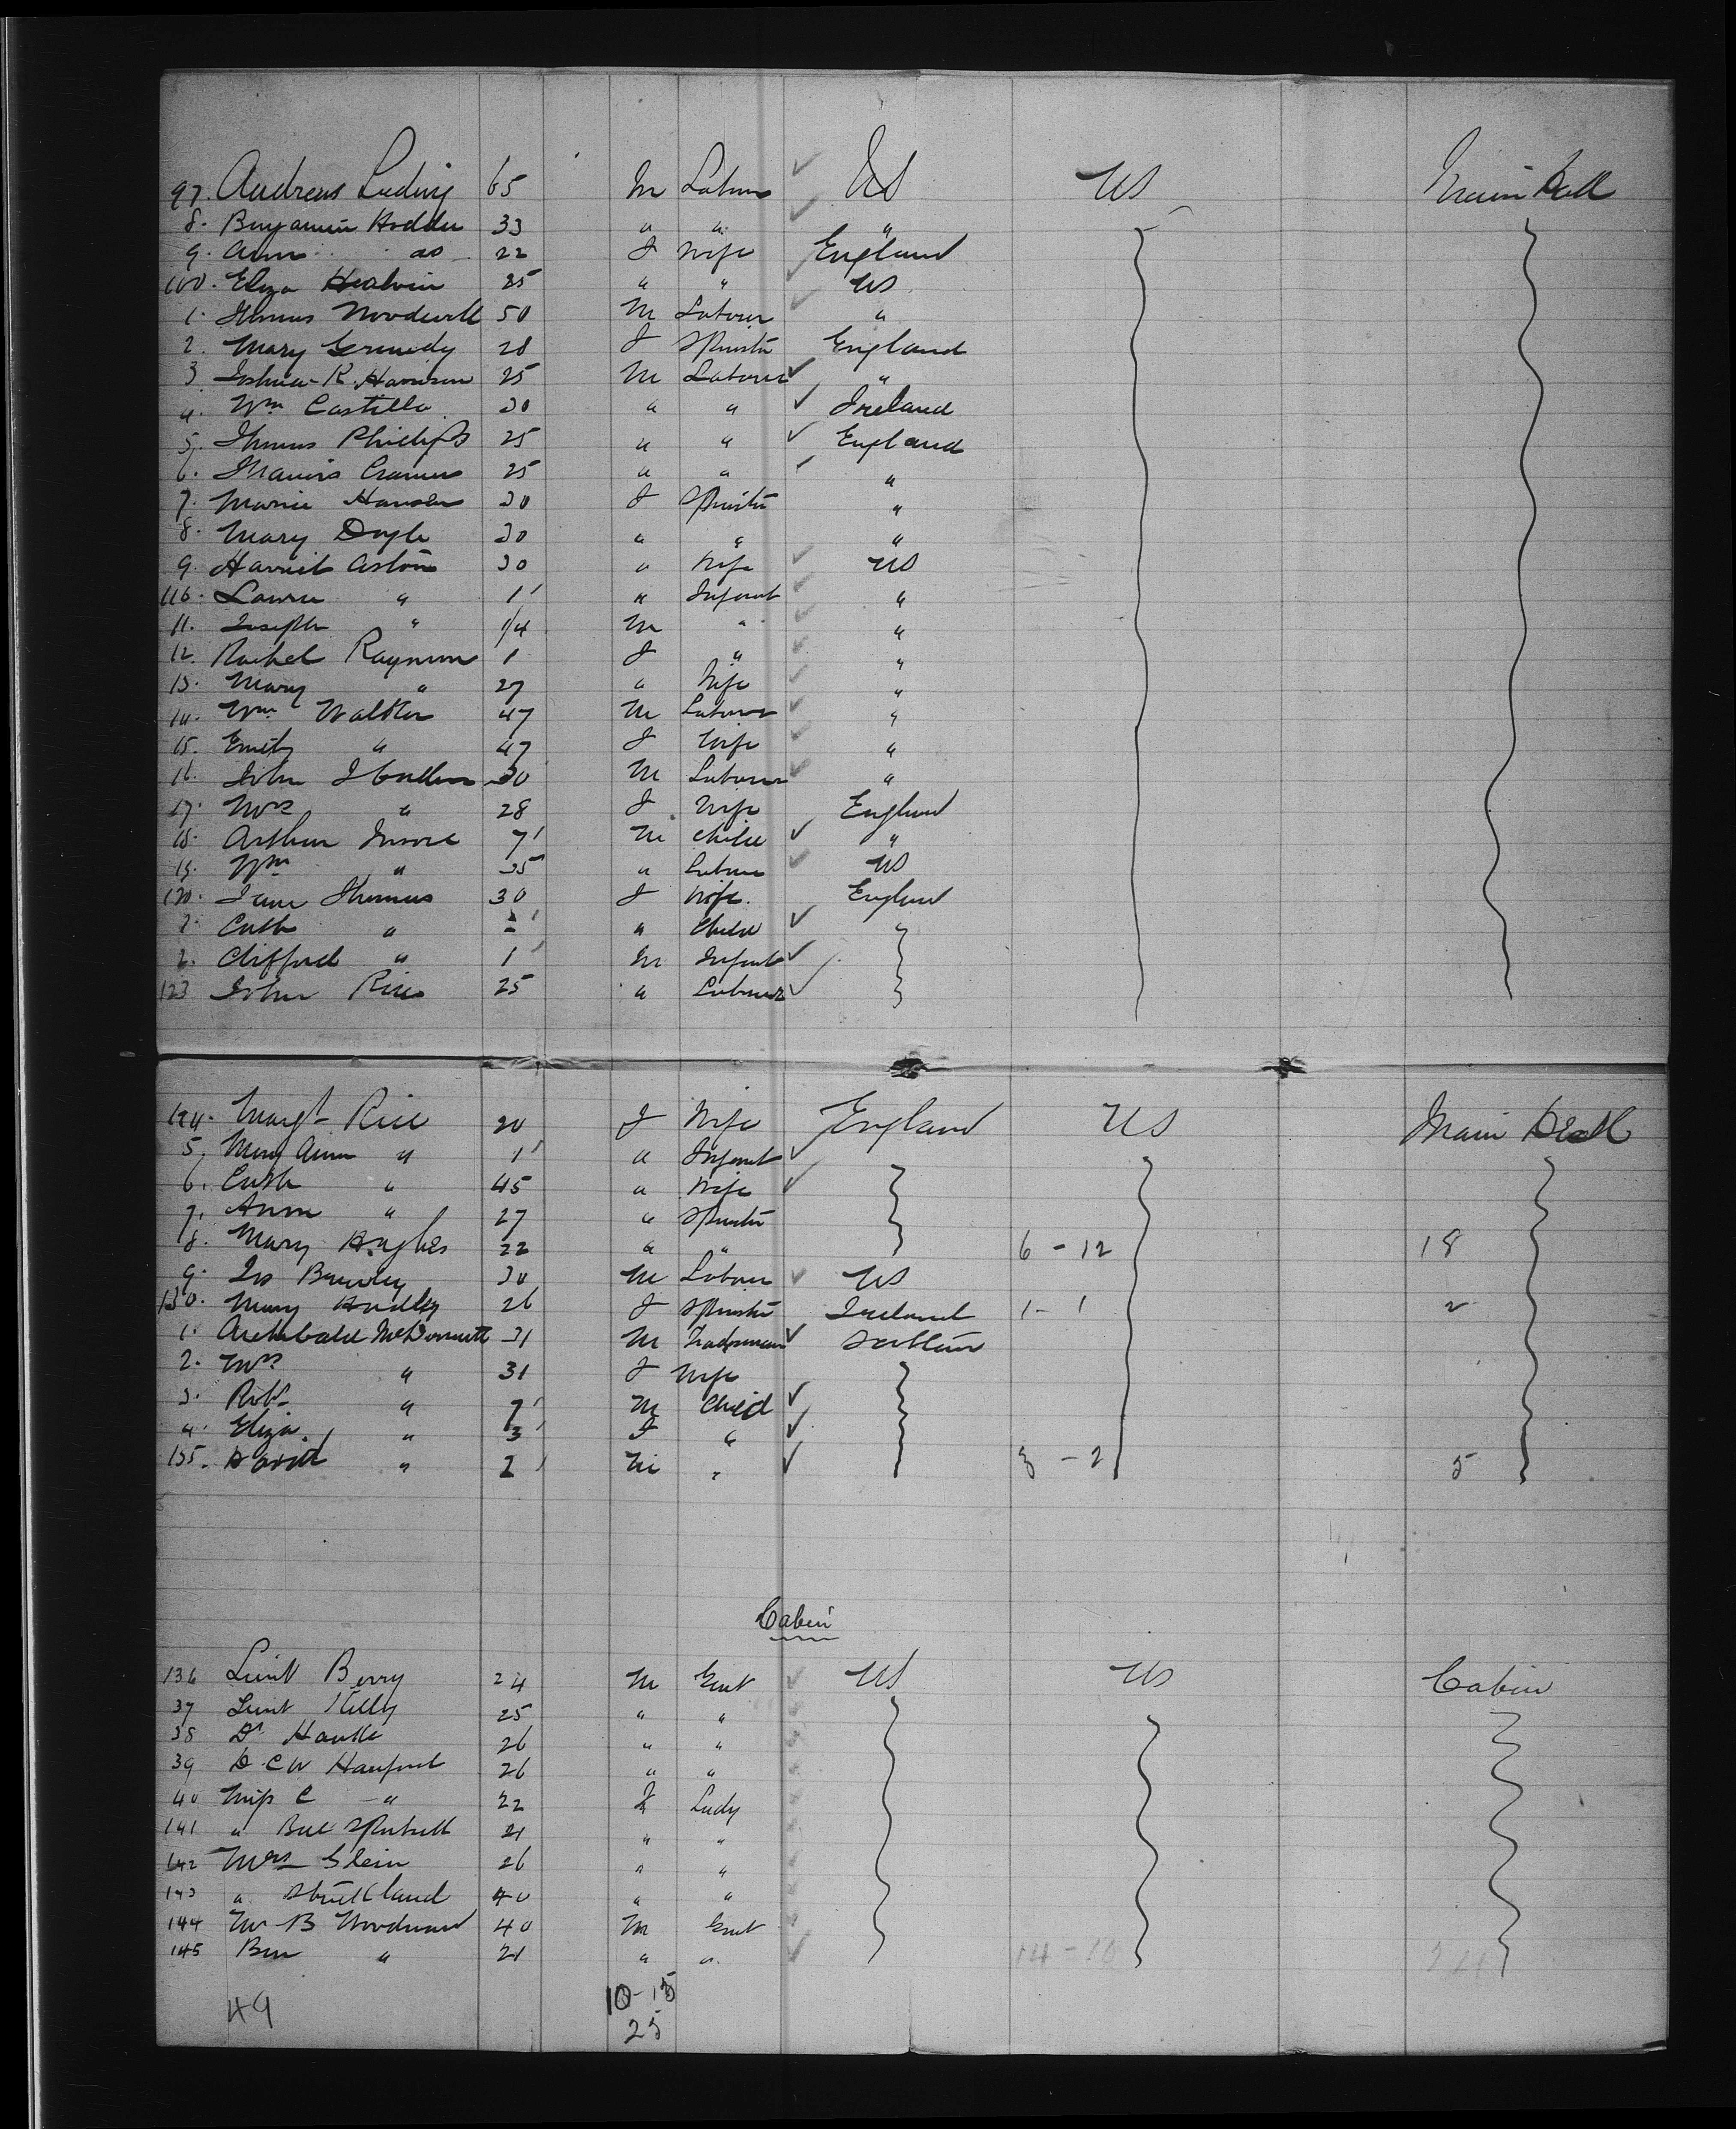 97. Andreas Ludwig 65 M Labour US US Main Deck
8. Benjamin Hodder 33 " " "
9. Ann do 22 F Wife England
100. Eliza 25 " " US
1. Thomas Woodwell 50 M Labourer "
2. Mary 28 F Spinstr England
3. Joshua R. Harrison 25 M Labourer "
4. Wm Castello 30 " " Ireland
5. Thomas Phillips 25 " " England
6. Francis Cramer 25 " " "
7. Maria Hansen 30 F Spinstr "
8. Mary Doyle 30 " " "
9. Harriet Aston 30 " Wife US
110. Laura " 1 " Infant "
11. Joseph " 1/4 M " "
12. Rachel Raymon 1 F " "
13. Mary " 27 " Wife "
14. Wm Walker 47 M Labourer "
15. Emily " 47 F Wife "
16. John 30 M Labourer "
17. Mrs " 28 F Wife England
18. Arthur Moore 7 M Child "
19. Wm " 35 " Labour US
120. Jane Thomas 30 F Wife. England
1. Cath " " Child "
2. Clifford " 1 M Infant
123 John Rice 25 " Labourer
124. Margt Rice 20 F Wife England US Main Deck
5. Mary Ann " 1 " Infant
6. Cath " 45 " Wife
7. Ann " 27 " Spinstr
8. Mary Hughes 22 " " 6 - 12 18
9. Jas 30 M Labour US
130. Mary Hadley 26 F Spinstr Ireland 1 - 1 2
1. Archibald McDermott 31 M Tradesman Scotland
2. Mrs " 31 F Wife
3. Robt " 7 M Child
4. Eliza. " 3 F "
135. David " 2 M " 3 - 2 5
Cabin
136 Lieut Berry 24 M Gent US US Cabin
37 Lieut Kelly 25 " "
38 Dr 26 " "
39 D C W Hanford 26 " "
40 Miss C " 22 F Lady
141 " 21 " "
142 Mrs Glein 26 " "
143 " Strickland 40 " "
144 Mr B Woodward 40 M Gent
145 Ben " 21 " " 14 - 10 24
49 10 - 15
25